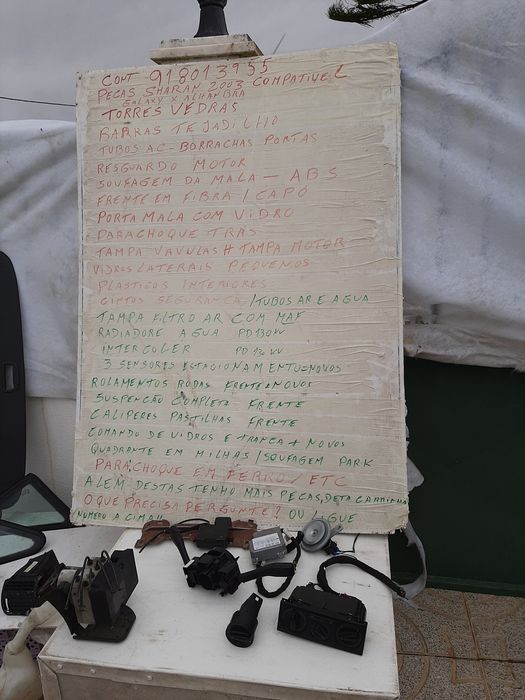 CONT 918013955
PEÇAS SHARAN 2003 COMPATIVEL
GALAXY X ALHAMBRA
TORRES VEDRAS
BARRAS TEJADILHO
TUBOS AC - BORRACHAS PORTAS
RESGUARDO MOTOR
SOUFAGEM DA MALA - ABS
FRENTE EM FIBRA / CAPÓ
PORTA MALA COM VIDRO
PARACHOQUE TRÁS
TAMPA VAVULAS # TAMPA MOTOR
VIDROS LATERAIS PEQUENOS
PLASTICOS INTERIORES
CINTOS SEGURANÇA / TUBOS AR E AGUA
TAMPA FILTRO AR COM MAF
RADIADORE AGUA PD 130 KV
INTERCOLER PD 130 KV
3 SENSORES ESTACIONAMENTO=NOVOS
ROLAMENTOS RODAS FRENTE=NOVOS
SUSPENCÃO COMPLETA FRENTE
CALIPERES PASTILHAS FRENTE
COMANDO DE VIDROS E TRANCA + NOVOS
QUADRANTE EM MILHAS / SOUFAGEM PARK
PARACHOQUE EM FERRO / ETC
ALÉM DESTAS TENHO MAIS PEÇAS, DETA CARRINHA
O QUE PRECISA PERGUNTE? OU LIGUE
NUMERO A CIMA!!